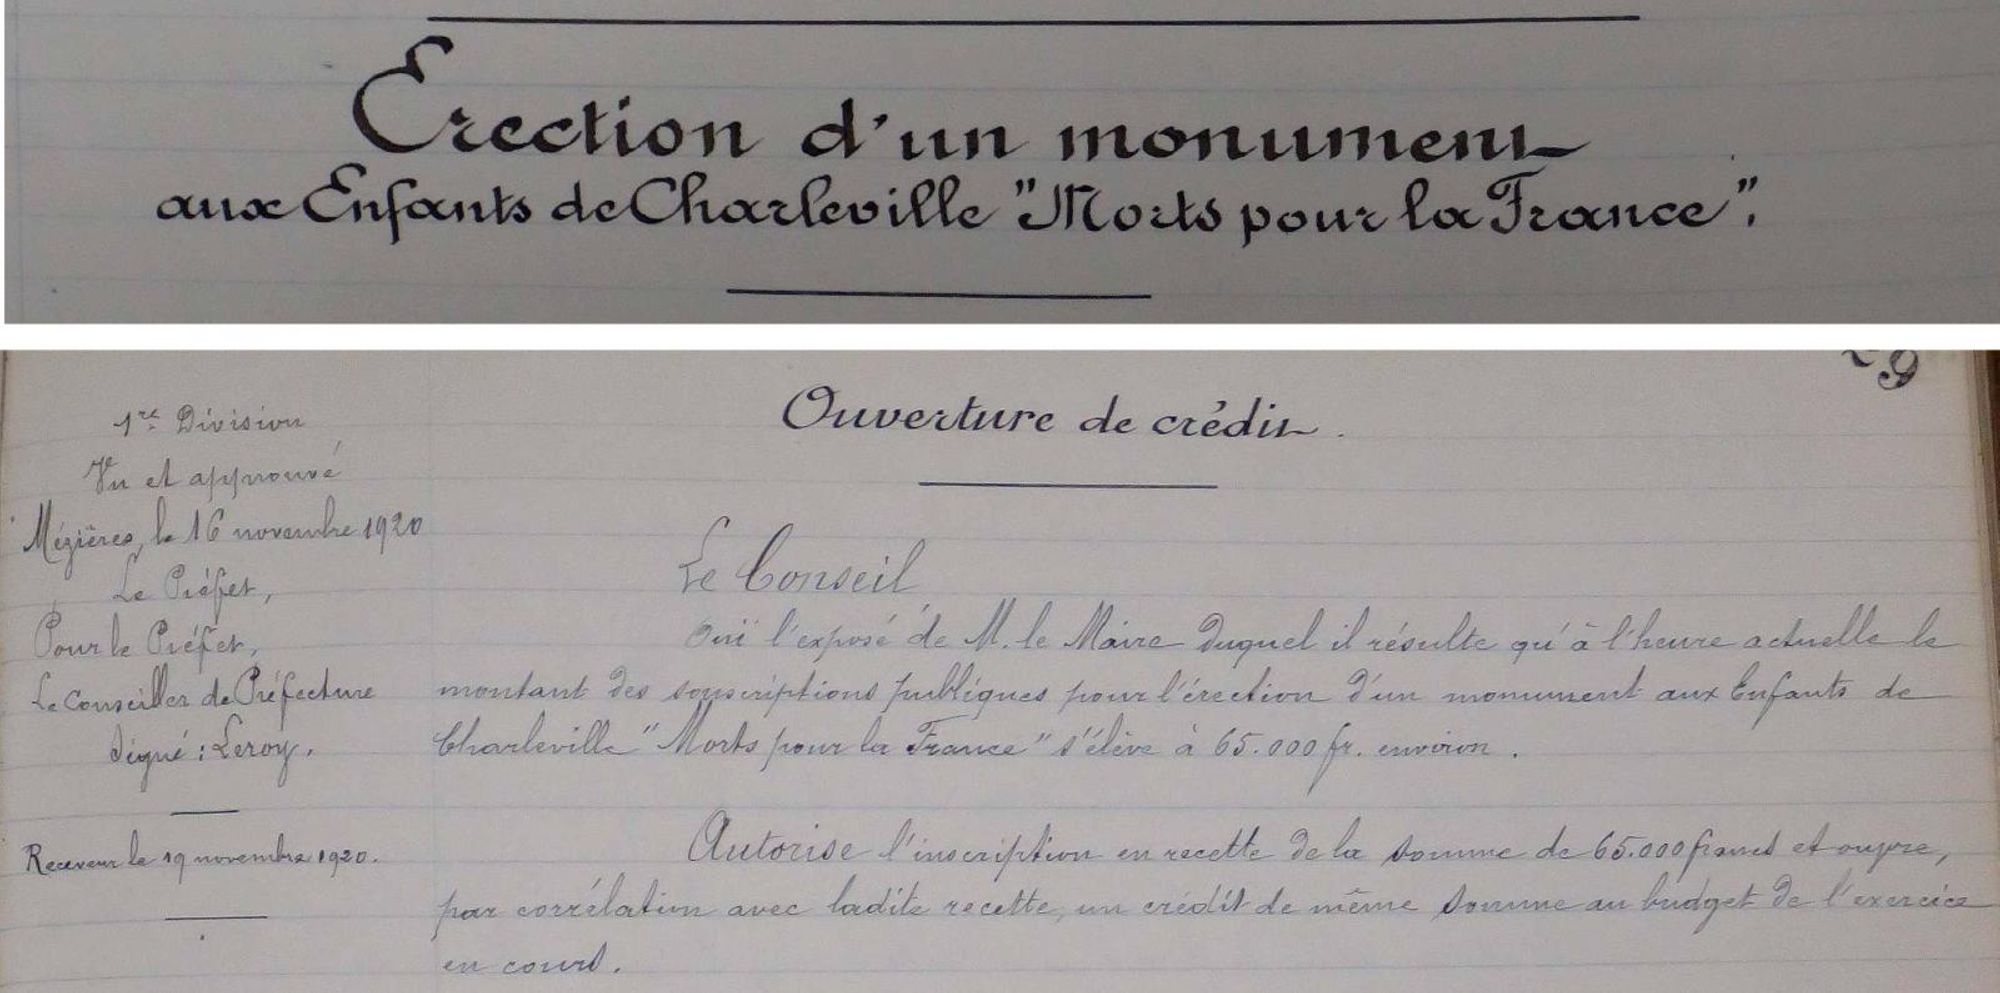 Erection d'un monument
aux Enfants de Charleville "Morts pour la France".
Ouverture de crédit.
1re Division
Vu et approuvé
Mézières, le 16 novembre 1920
Le Préfet,
Pour le Préfet,
Le Conseiller de Préfecture
Signé : Leroy.
Receveur le 19 novembre 1920.
Le Conseil
Ouï l'exposé de M. le Maire duquel il résulte qu'à l'heure actuelle le
montant des souscriptions publiques pour l'érection d'un monument aux Enfants de
Charleville "Morts pour la France" s'élève à 65.000 fr. environ.
Autorise l'inscription en recette de la somme de 65.000 francs et ouvre,
par corrélation avec ladite recette, un crédit de même somme au budget de l'exercice
en cours.